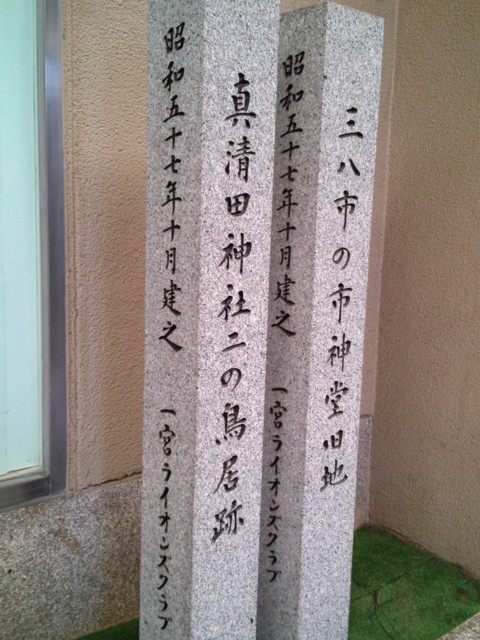 三八市の市神堂旧地
昭和五十七年十月建之 一宮ライオンズクラブ
真清田神社二の鳥居跡
昭和五十七年十月建之 一宮ライオンズクラブ